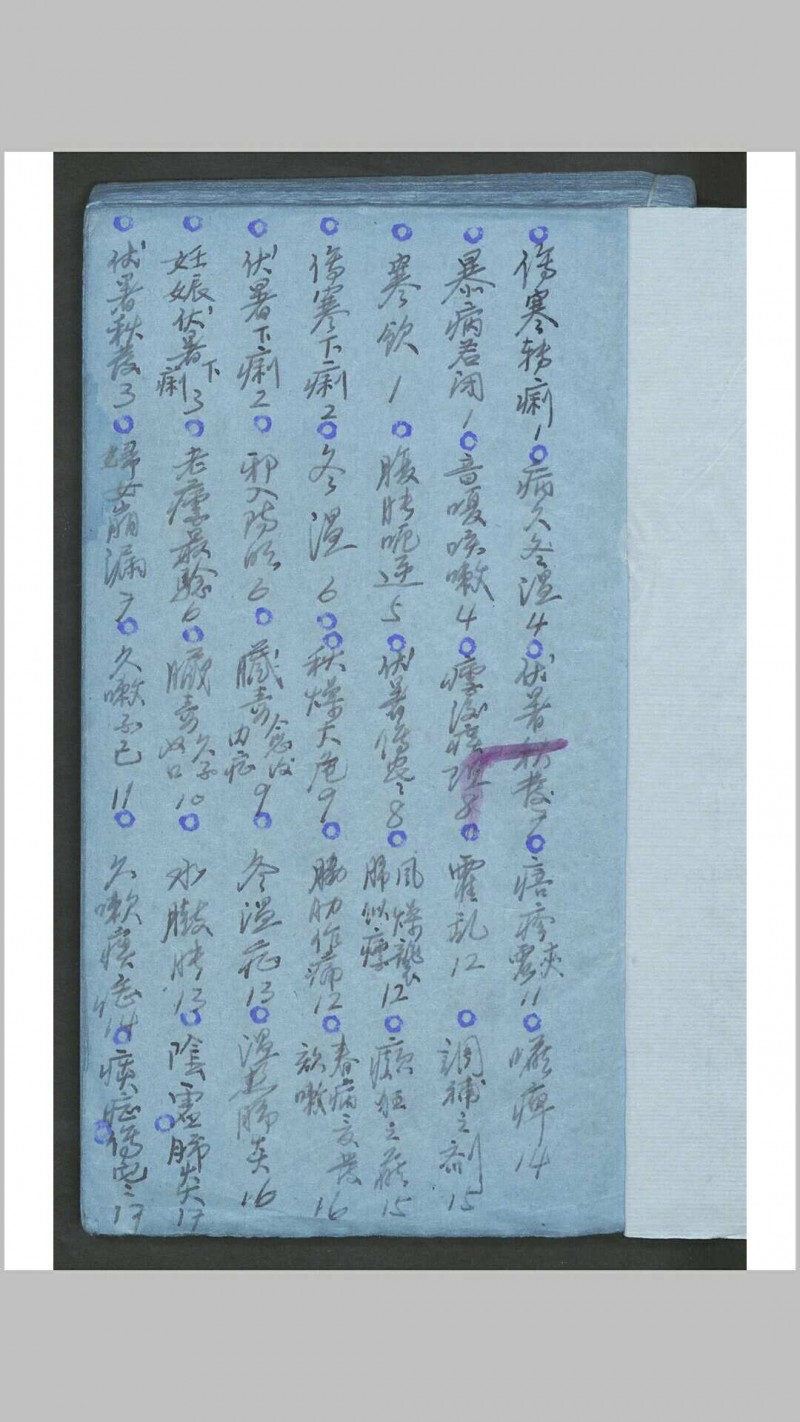 傷寒轉痢 1
暴病若閉 1
寒飲 1
傷寒下痢 2
伏暑下痢 2
妊娠伏暑下痢 3
伏暑秋發 3
病久冬溫 4
音嗄咳嗽 4
腹脹呃逆 5
冬溫 6
邪入陽明 6
老瘧最驗 6
婦女崩漏 7
伏暑秋發 7
8
伏暑傷寒 8
秋燥大危 9
臟毒內症 9
臟毒久不收口 10
久嗽不已 11
痦疹夾 11
霍乱 12
風燥襲肺似瘵 12
脇肋作痛 12
冬溫症 13
水臌脹 13
久嗽痰症 14
嚥痺 14
調補之劑 15
癲狂之蘊 15
春病夏發欬嗽 16
溫热肺炎 16
陰虛肺炎 17
17